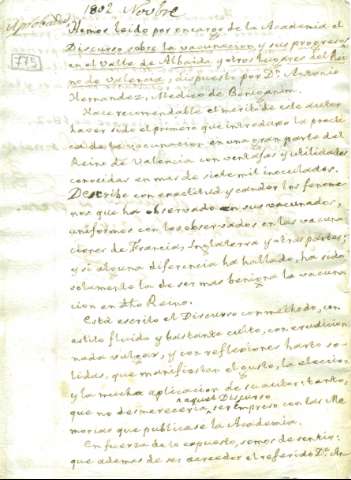 1802 Novbre
Aprobados
775
Hemos leido por encargo de la Academia el
Discurso sobre la vacunacion y sus progresos
en el Valle de Albaida y otros lugares del Rei
no de Valencia, dispuesto por Dn. Antonio
Hernandez, Medico de Beniganim.
Hace recomendable el merito de este autor
haver sido el primero que introduxo la precio
sa vacunacion en una gran parte del
Reino de Valencia con ventajas y utilidades
conocidas en mas de siete mil inoculados.
Describe con exactitud y candor los fenome
nos que ha observado en sus vacunados,
uniformes con los observados en las vacuna
ciones de Francia, Inglaterra y otras partes;
y si alguna diferencia ha hallado, ha sido
solamente la de ser mas benigna la vacuna
cion en dho Reino.
Está escrito el Discurso con methodo, con
estilo fluido y bastante culto, con erudicion
nada vulgar, y con reflexiones harto so-
lidas, que manifiestan el gusto, la eleccion,
y la mucha aplicacion de su autor: tanto,
que no desmereceria aquel Discurso ser impreso con las Me
morias que publicase la Academia.
En fuerza de lo expuesto, somos de sentir:
que ademas de ser acreedor el referido Dn. An